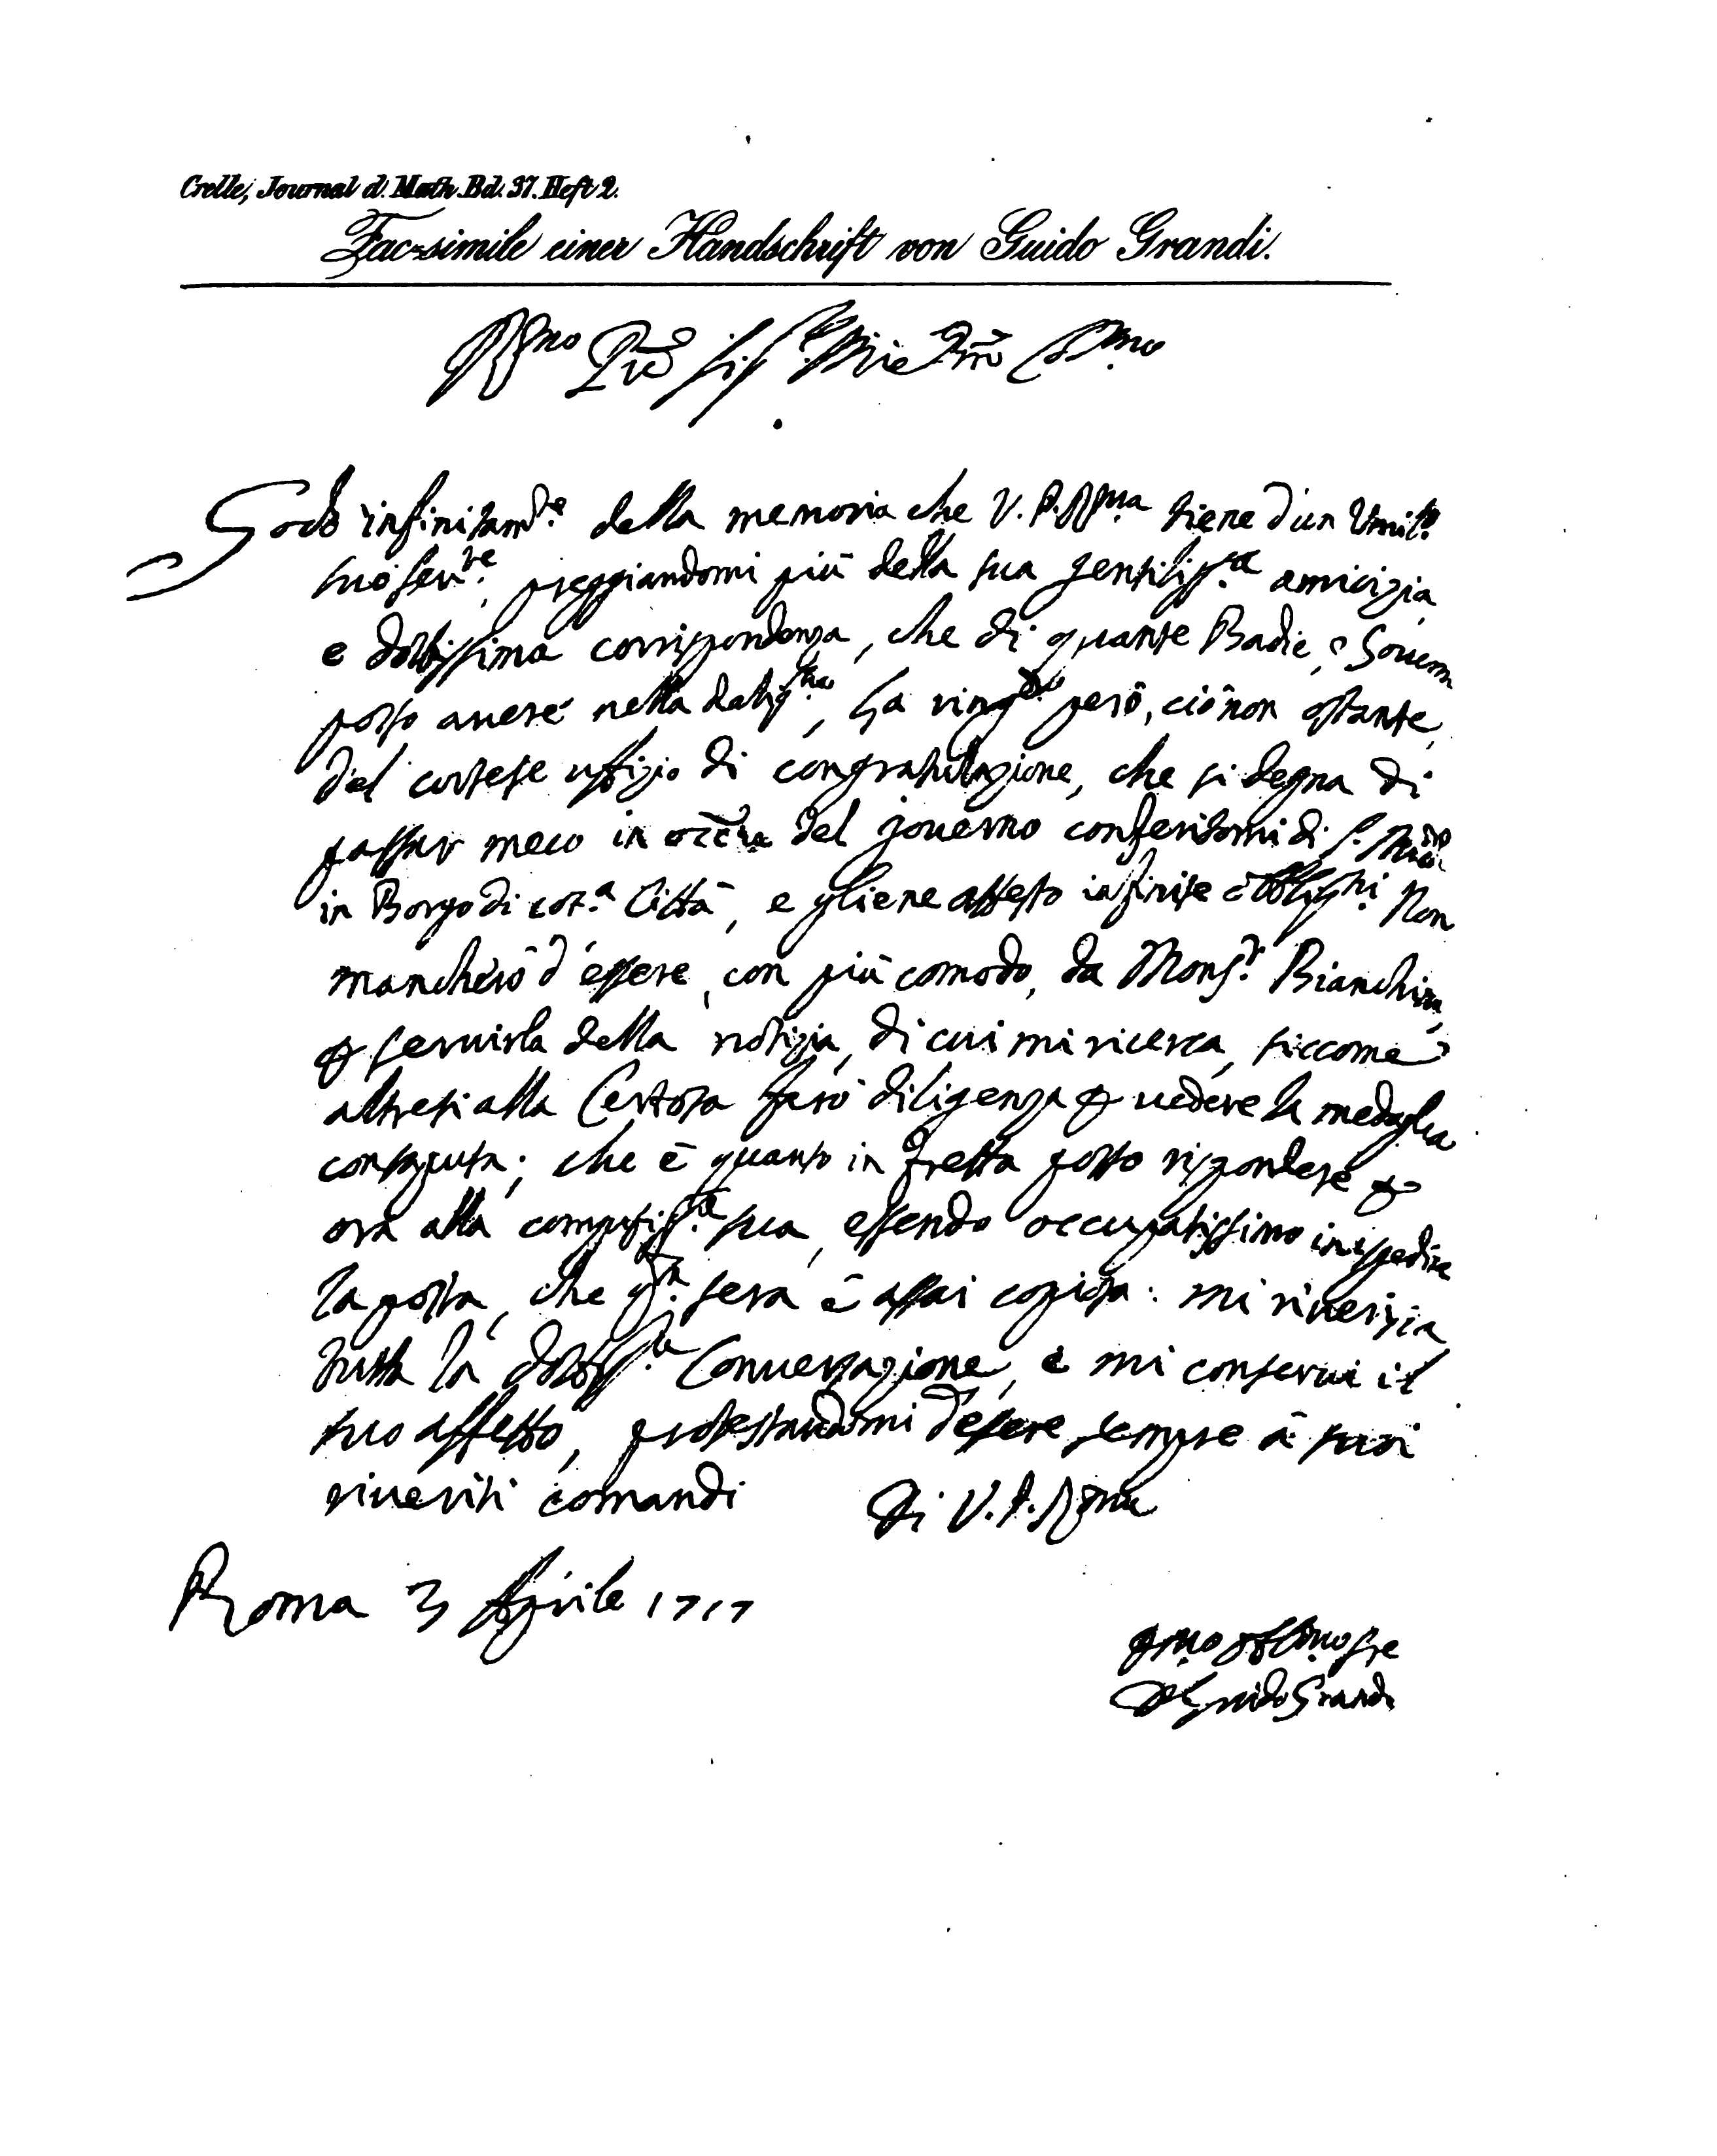 Crelle, Journal d. Math. Bd. 37. Heft 2.
Fac-simile einer Handschrift von Guido Grandi.
Rmo Pre Sig.re Mio Prõn Colmo
Godo infinitam.te della memoria che V. P. Rma tiene d'un Umil.o
suo Ser.re, preggiandomi più della sua gentiliss.a amicizia
e dottissima corrispondenza, che di quante Badie, e Governi
posso avere nella Relig.ne, La ring.o però, ciò non ostante,
del cortese uffizio di congratulazione, che si degna di
passar meco in occ.ne del governo conferitomi di S.
in Borgo di cot.a Città, e gliene attesto infinite obblig.ni Non
mancherò d'essere, con più comodo, da Mons.r Bianchini,
p servirla della notizia, di cui mi ricerca, siccome
altresi alla Certosa farò diligenza p vedere la medaglia
consaputa; che è quanto in fretta posso rispondere p
ora alla compitiss.a sua, essendo occupatissimo in ispedire
la posta, che q.ta sera è assai copiosa: mi riverisca
tutta la dottiss.a Conversazione, e mi conservi il
suo affetto, protestandomi d'essere sempre à suoi
riveriti comandi Di V. P. Rma
Roma 3 Aprile 1717
D. Guido Grandi